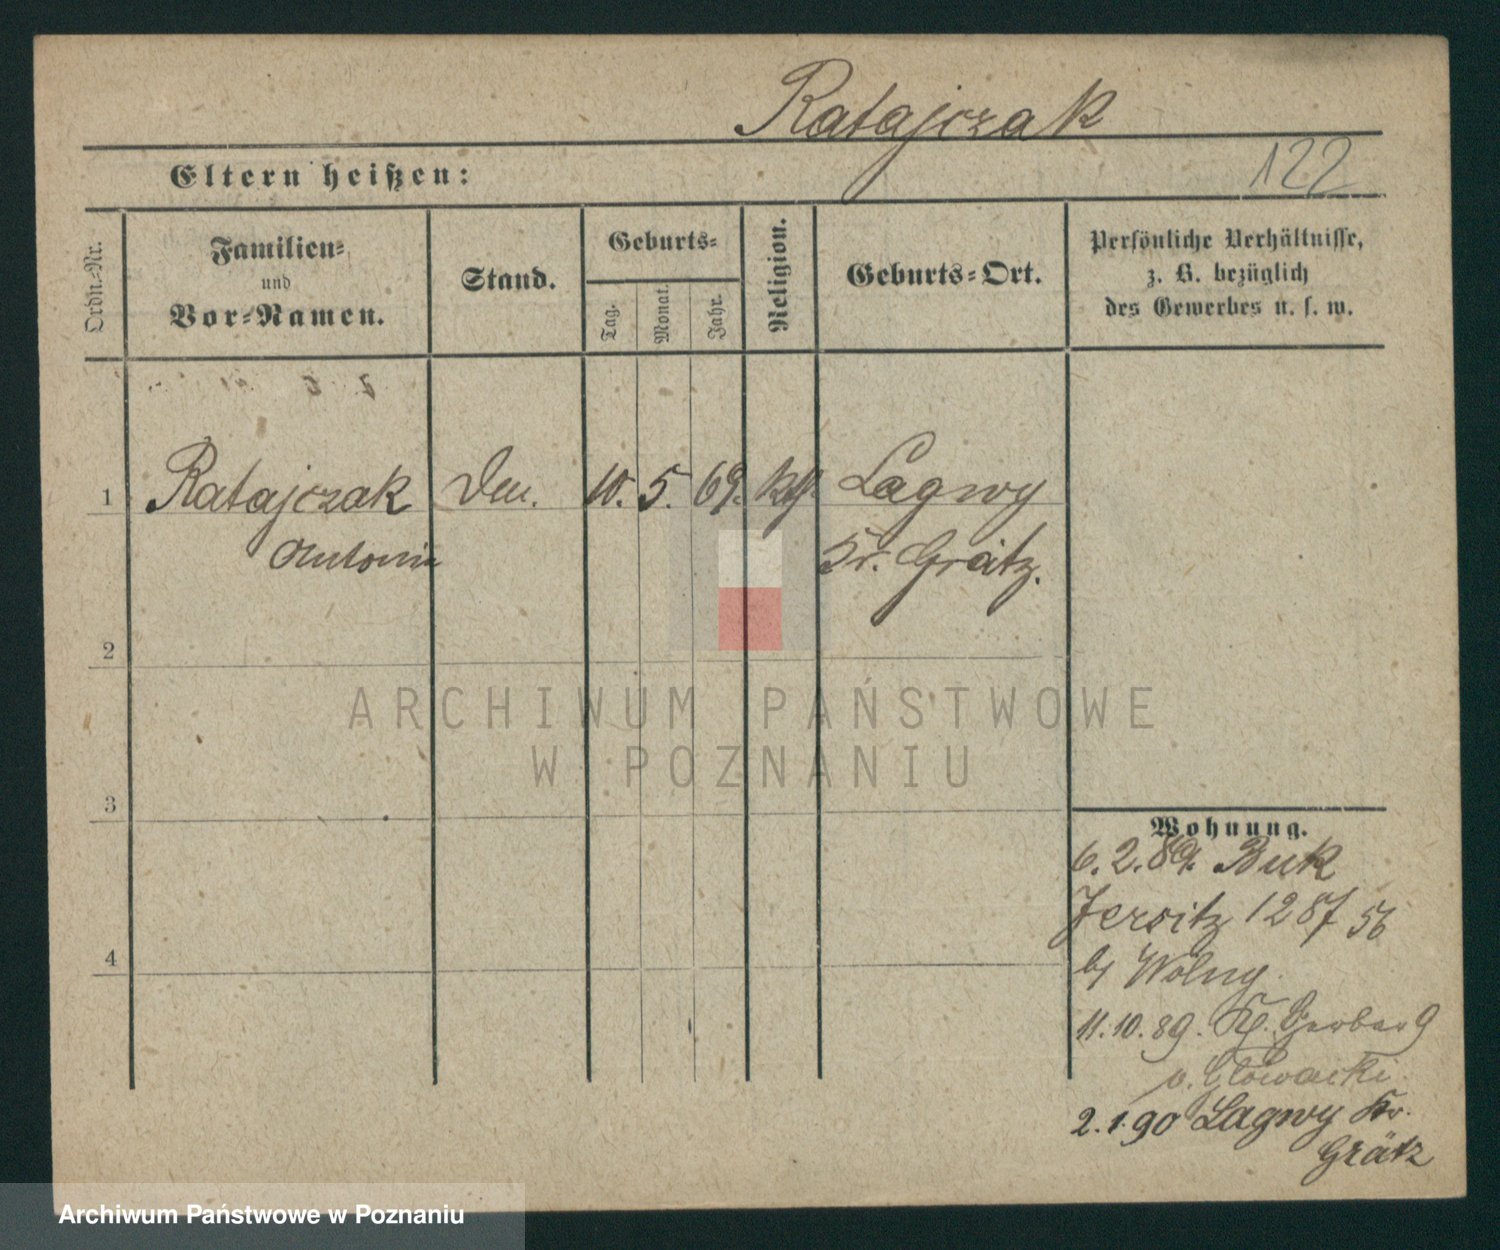 Ratajczak
122
Eltern heißen:
Ordn.-Nr.
Familien-
und
Vor-Namen.
Stand.
Geburts-
Tag.
Monat.
Jahr.
Religion.
Geburts-Ort.
Persönliche Verhältnisse,
z. B. bezüglich
des Gewerbes u. s. w.
1 Ratajczak 10. 5. 69. Lagwy
Antonie Kr. Grätz.
2
3
4
Wohnung.
6. 2. 89. Buk
Jersitz 128
Wolny
11. 10. 89. Kl. Gerber 9
Glowacki
2. 1. 90 Lagwy Kr.
Grätz
ARCHIWUM PAŃSTWOWE
W POZNANIU
Archiwum Państwowe w Poznaniu